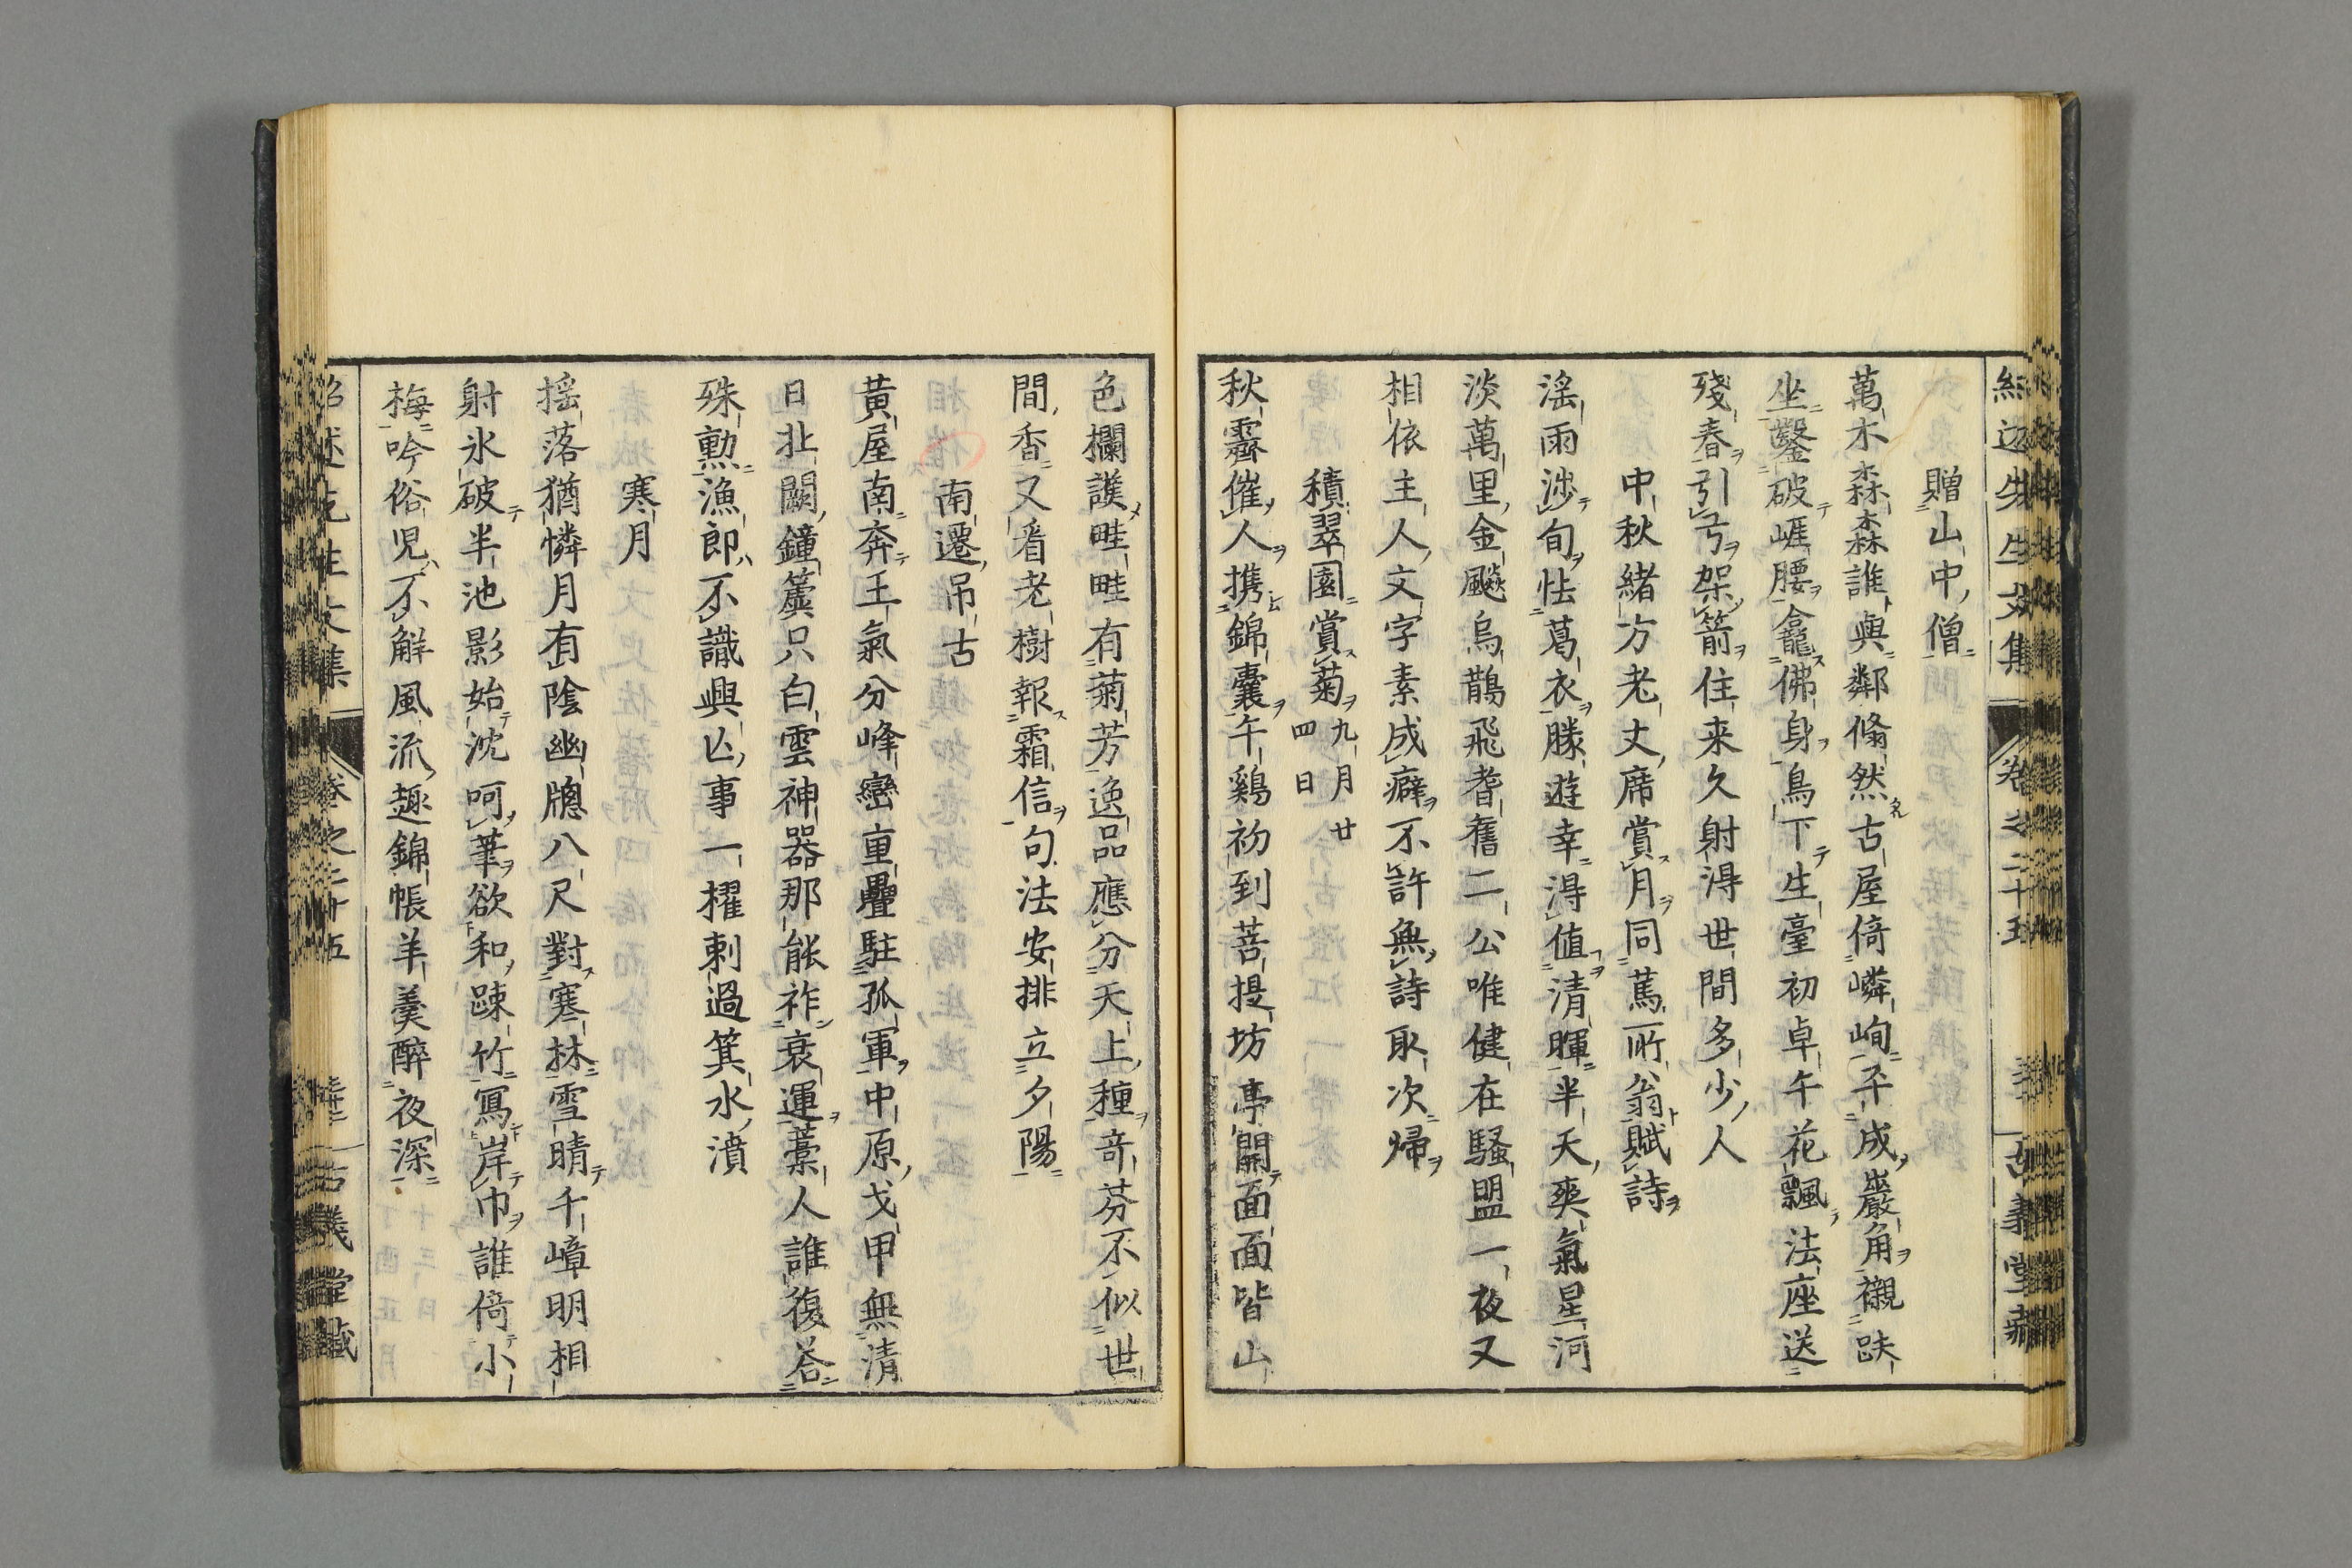 贈山中僧
萬木森森誰與鄰翛然古屋倚嶙峋平成巖角襯趺
坐鑿破崕腰龕佛身鳥下生臺初卓午花飄法座送
殘春引弓架箭住来久射得世間多少人
中秋緒方老丈席賞月同蔦所翁賦詩
滛雨涉旬怯葛衣勝遊幸得值清暉半天爽氣星河
淡萬里金飈烏鵲飛耆舊二公唯健在騷盟一夜又
相依主人文字素成癖不許無詩取次帰
積翠園賞菊九月廿四日
秋霽催人携錦囊午鷄初到菩提坊亭開面面皆山
色欄護畦畦有菊芳逸品應分天上種竒芬不似世
間香又看老樹報霜信句法安排立夕陽
南遷吊古
黃屋南奔王氣分峰巒重疊駐孤軍中原戈甲無清
日北闕鐘簴只白雲神器那能祚衰運藁人誰復荅
殊勲漁郎不識興亾事一櫂刺過箕水濆
寒月
揺落猶憐月有陰幽牕八尺對寒林雪晴千嶂明相
射氷破半池影始沈呵筆欲和踈竹寫岸巾誰倚小
梅吟俗児不解風流趣錦帳羊羹醉夜深